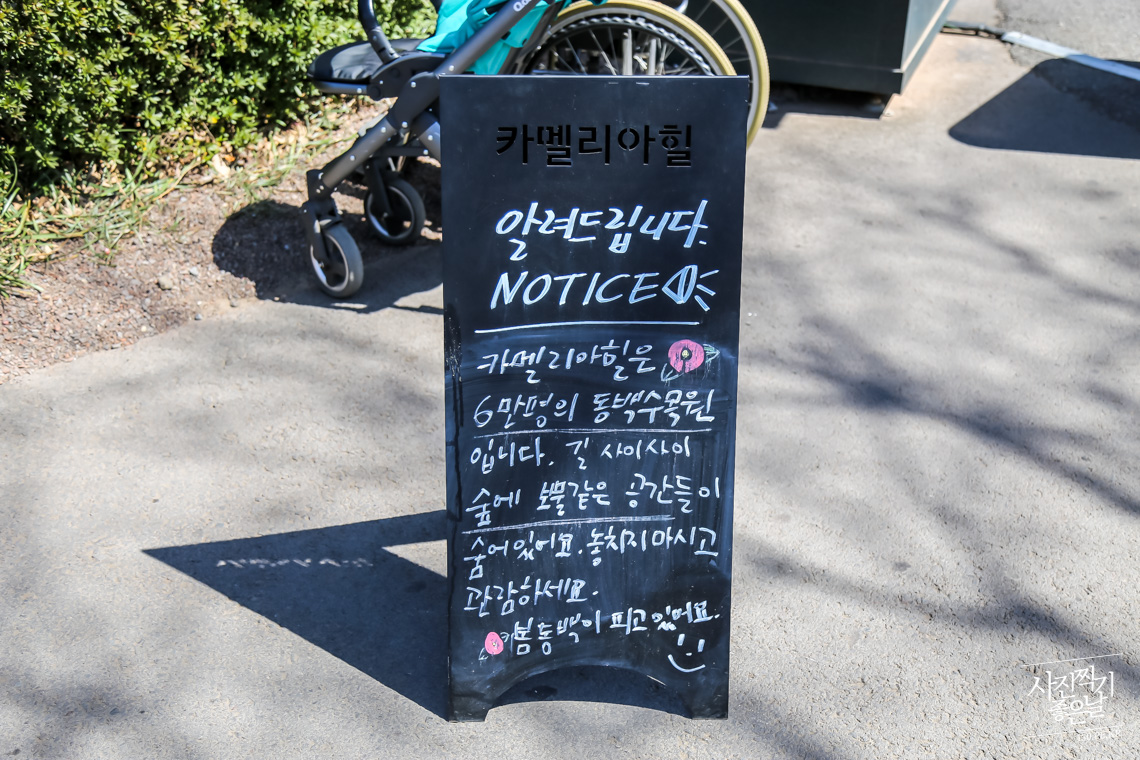 카멜리아힐
알려드립니다.
NOTICE
카멜리아힐은
6만평의 동백수목원
입니다. 길 사이사이
숲에 보물같은 공간들이
숨어있어요. 놓치지마시고
관람하세요.
봄동백이 피고있어요.
사진찍기
좋은날